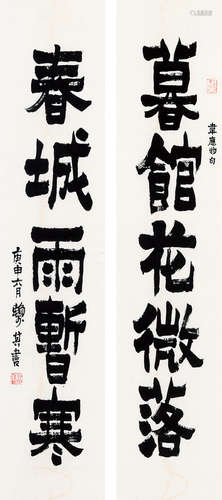 韋應物句
暮館花微落
春城雨暫寒
庚申六月 其書